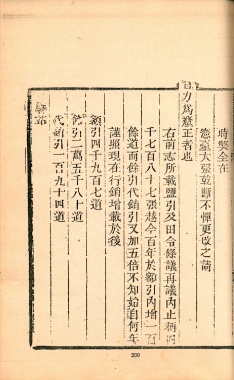 時與全在
憲臺大張乾斷不憚更改之請
力爲釐正者也
右前志所載鹽引及田令條議再議內止稱
千七百八十七張越今百年於額引內增一百
餘道而餘引代銷引又加五倍不知始自何年
謹照現在行銷增載於後
額引四千九百七道
餘引二萬五千八十道
代銷引一百九十四道
驛站
200